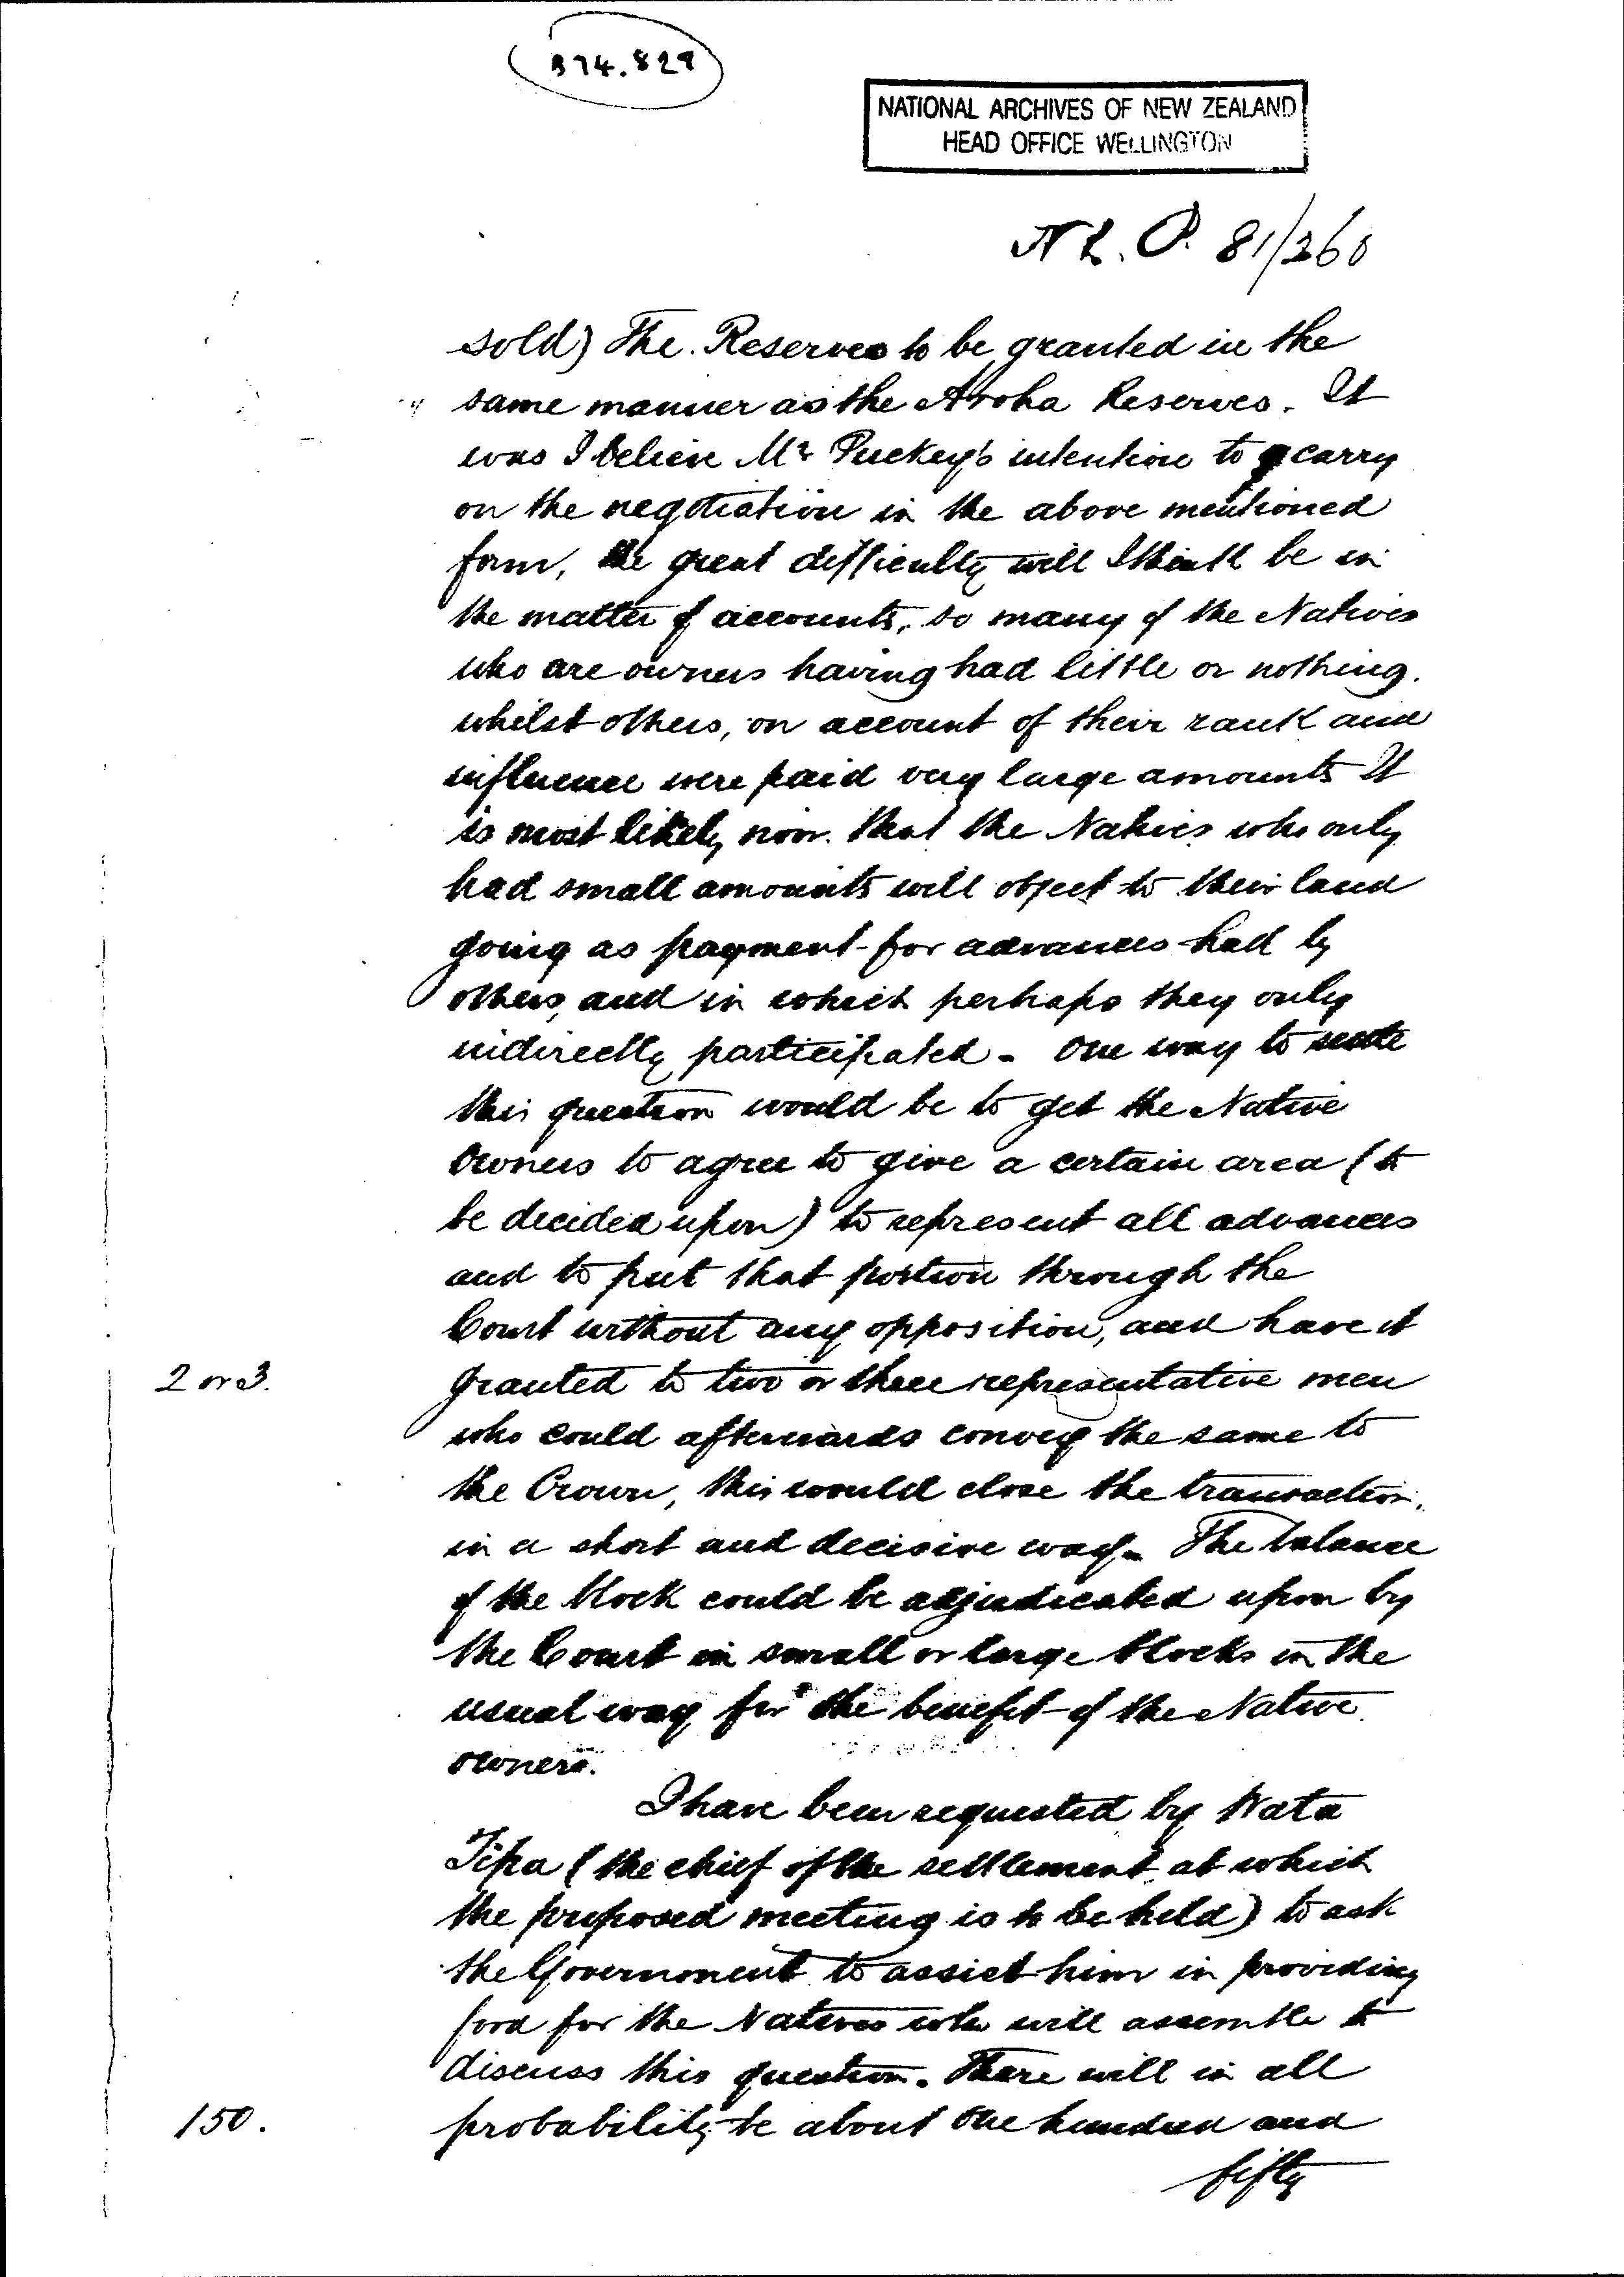 B74.829
NATIONAL ARCHIVES OF NEW ZEALAND
HEAD OFFICE WELLINGTON
N L. P. 81/360
sold) The Reserves to be granted in the
same manner as the Aroha Reserves. It
was I believe Mr Puckey's intention to carry
on the negotiation in the above mentioned
form, the great difficulty will I think be in
the matter of accounts, so many of the Natives
who are owners having had little or nothing.
whilst others, on account of their rank and
influence were paid very large amounts It
is most likely now that the Natives who only
had small amounts will object to their land
going as payment for advances had by
others, and in which perhaps they only
indirectly participated - One way to settle
this question would be to get the Native
Owners to agree to give a certain area (to
be decided upon) to represent all advances
and to put that portion through the
Court without any opposition, and have it
2 or 3. granted to two or three representative men
who could afterwards convey the same to
the Crown, this would close the transaction
in a short and decisive way. The balance
of the block could be adjudicated upon by
the Court in small or large blocks in the
usual way for the benefit of the Native
owners.
I have been requested by Wata
Tipa (the chief of the settlement at which
the proposed meeting is to be held) to ask
the Government to assist him in providing
food for the Natives who will assemble to
discuss this question. There will in all
150. probability be about one hundred and
fifty